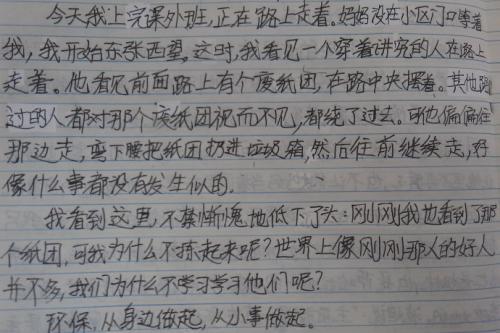 今天我上完课外班,正在路上走着。妈妈没在小区门口等着
我,我开始东张西望。这时,我看见一个穿着讲究的人在路上
走着。他看见前面路上有个废纸团,在路中央摆着。其他路
过的人都对那个废纸团视而不见,都绕了过去。可他偏偏往
那边走,弯下腰把纸团扔进垃圾箱,然后往前继续走,好
像什么事都没有发生似的.
我看到这里,不禁惭愧地低下了头:刚刚我也看到了那
个纸团,可我为什么不拣起来呢?世界上像刚刚那人的好人
并不多,我们为什么不学习学习他们呢?
环保,从身边做起,从小事做起。